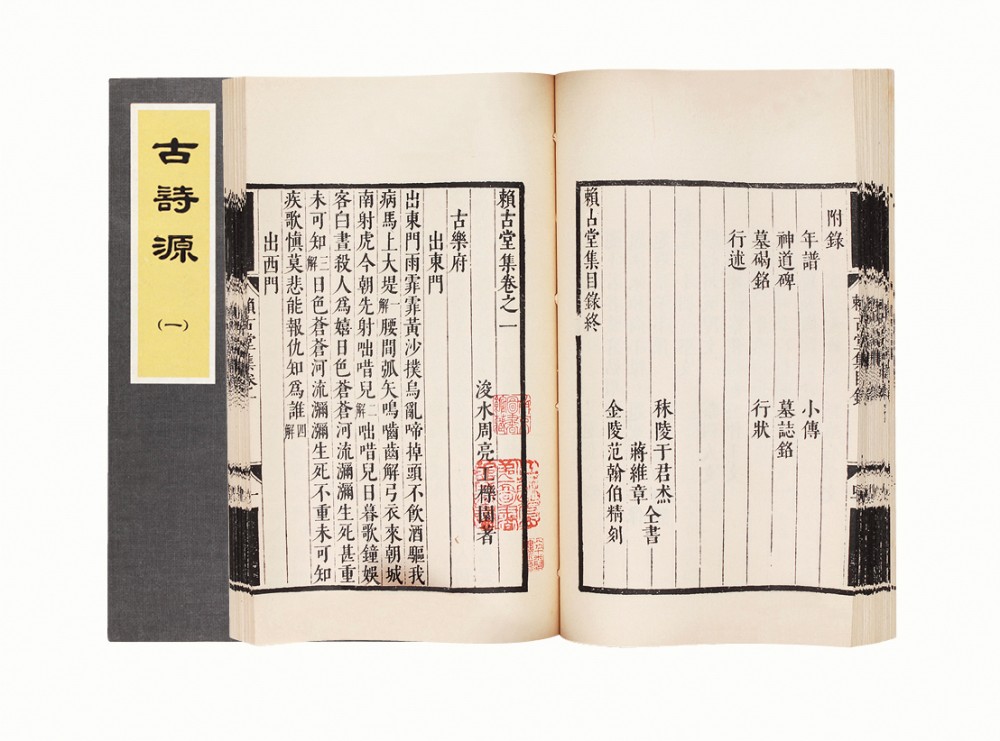 古詩源
(一)
附錄
年譜 小傳
神道碑 墓誌銘
墓碣銘 行狀
行述
秣陵于君杰
蔣維章 仝書
金陵范翰伯精刻
賴古堂集目錄終
賴古堂集目錄
賴古堂集卷之一
浚水周亮工櫟園著
古樂府
出東門
出東門雨霏霏黃沙撲烏亂啼掉頭不飲酒驅我
病馬上大堤一解腰間弧矢鳴嚙齒解弓衣來朝城
南射虎今朝先射咄唶兒二解咄唶兒日暮歌鐘娛
客白晝殺人爲嬉日色蒼蒼河流瀰瀰生死甚重
未可知三解日色蒼蒼河流瀰瀰生死不重未可知
疾歌愼莫悲能報仇知爲誰四解
出西門